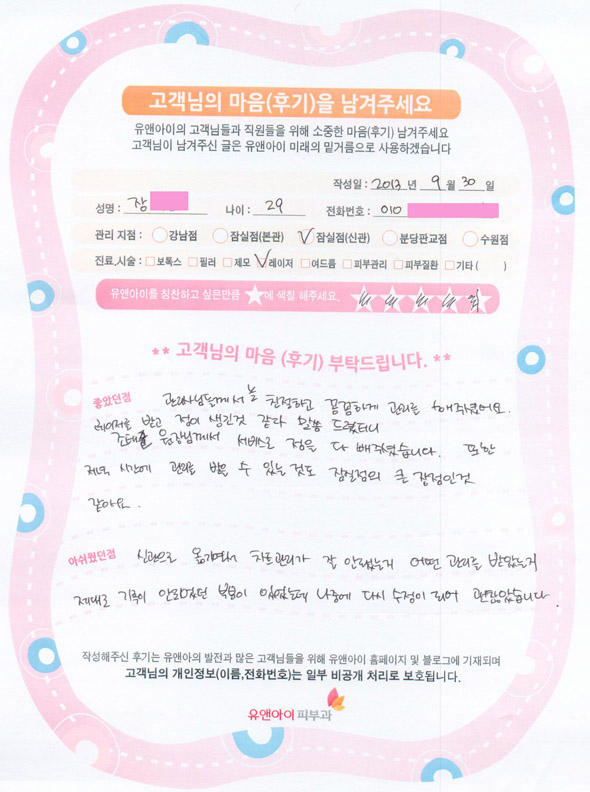 고객님의 마음(후기)을 남겨주세요
유앤아이의 고객님들과 직원들을 위해 소중한 마음(후기) 남겨주세요
고객님이 남겨주신 글은 유앤아이 미래의 밑거름으로 사용하겠습니다
작성일 : 2013 년 9 월 30 일
성명 : 장 나이 : 29 전화번호 : 010
관리 지점 : 강남점 잠실점(본관) 잠실점(신관) 분당판교점 수원점
진료,시술 : 보톡스 필러 제모 레이저 여드름 피부관리 피부질환 기타 ( )
유앤아이를 칭찬하고 싶은만큼 ★에 색칠 해주세요.
** 고객님의 마음 (후기) 부탁드립니다. **
좋았던점 관리사님들께서는 친절하고 꼼꼼하게 관리를 해주셨어요.
레이저를 받고 점이 생긴것 같다 말씀 드렸더니
원장님께서 서비스로 점을 다 빼주셨습니다. 또한
저녁 시간에 관리를 받을 수 있는 것도 잠실점의 큰 장점인것
같아요.
아쉬웠던점 신관으로 옮기면서 차트관리가 잘 안됐는지 어떤 관리를 받았는지
제대로 기록이 안되었던 부분이 있었는데 나중에 다시 수정이 되어 괜찮았습니다.
작성해주신 후기는 유앤아의 발전과 많은 고객님들을 위해 유앤아이 홈페이지 및 블로그에 기재되며
고객님의 개인정보(이름,전화번호)는 일부 비공개 처리로 보호됩니다.
유앤아이 피부과